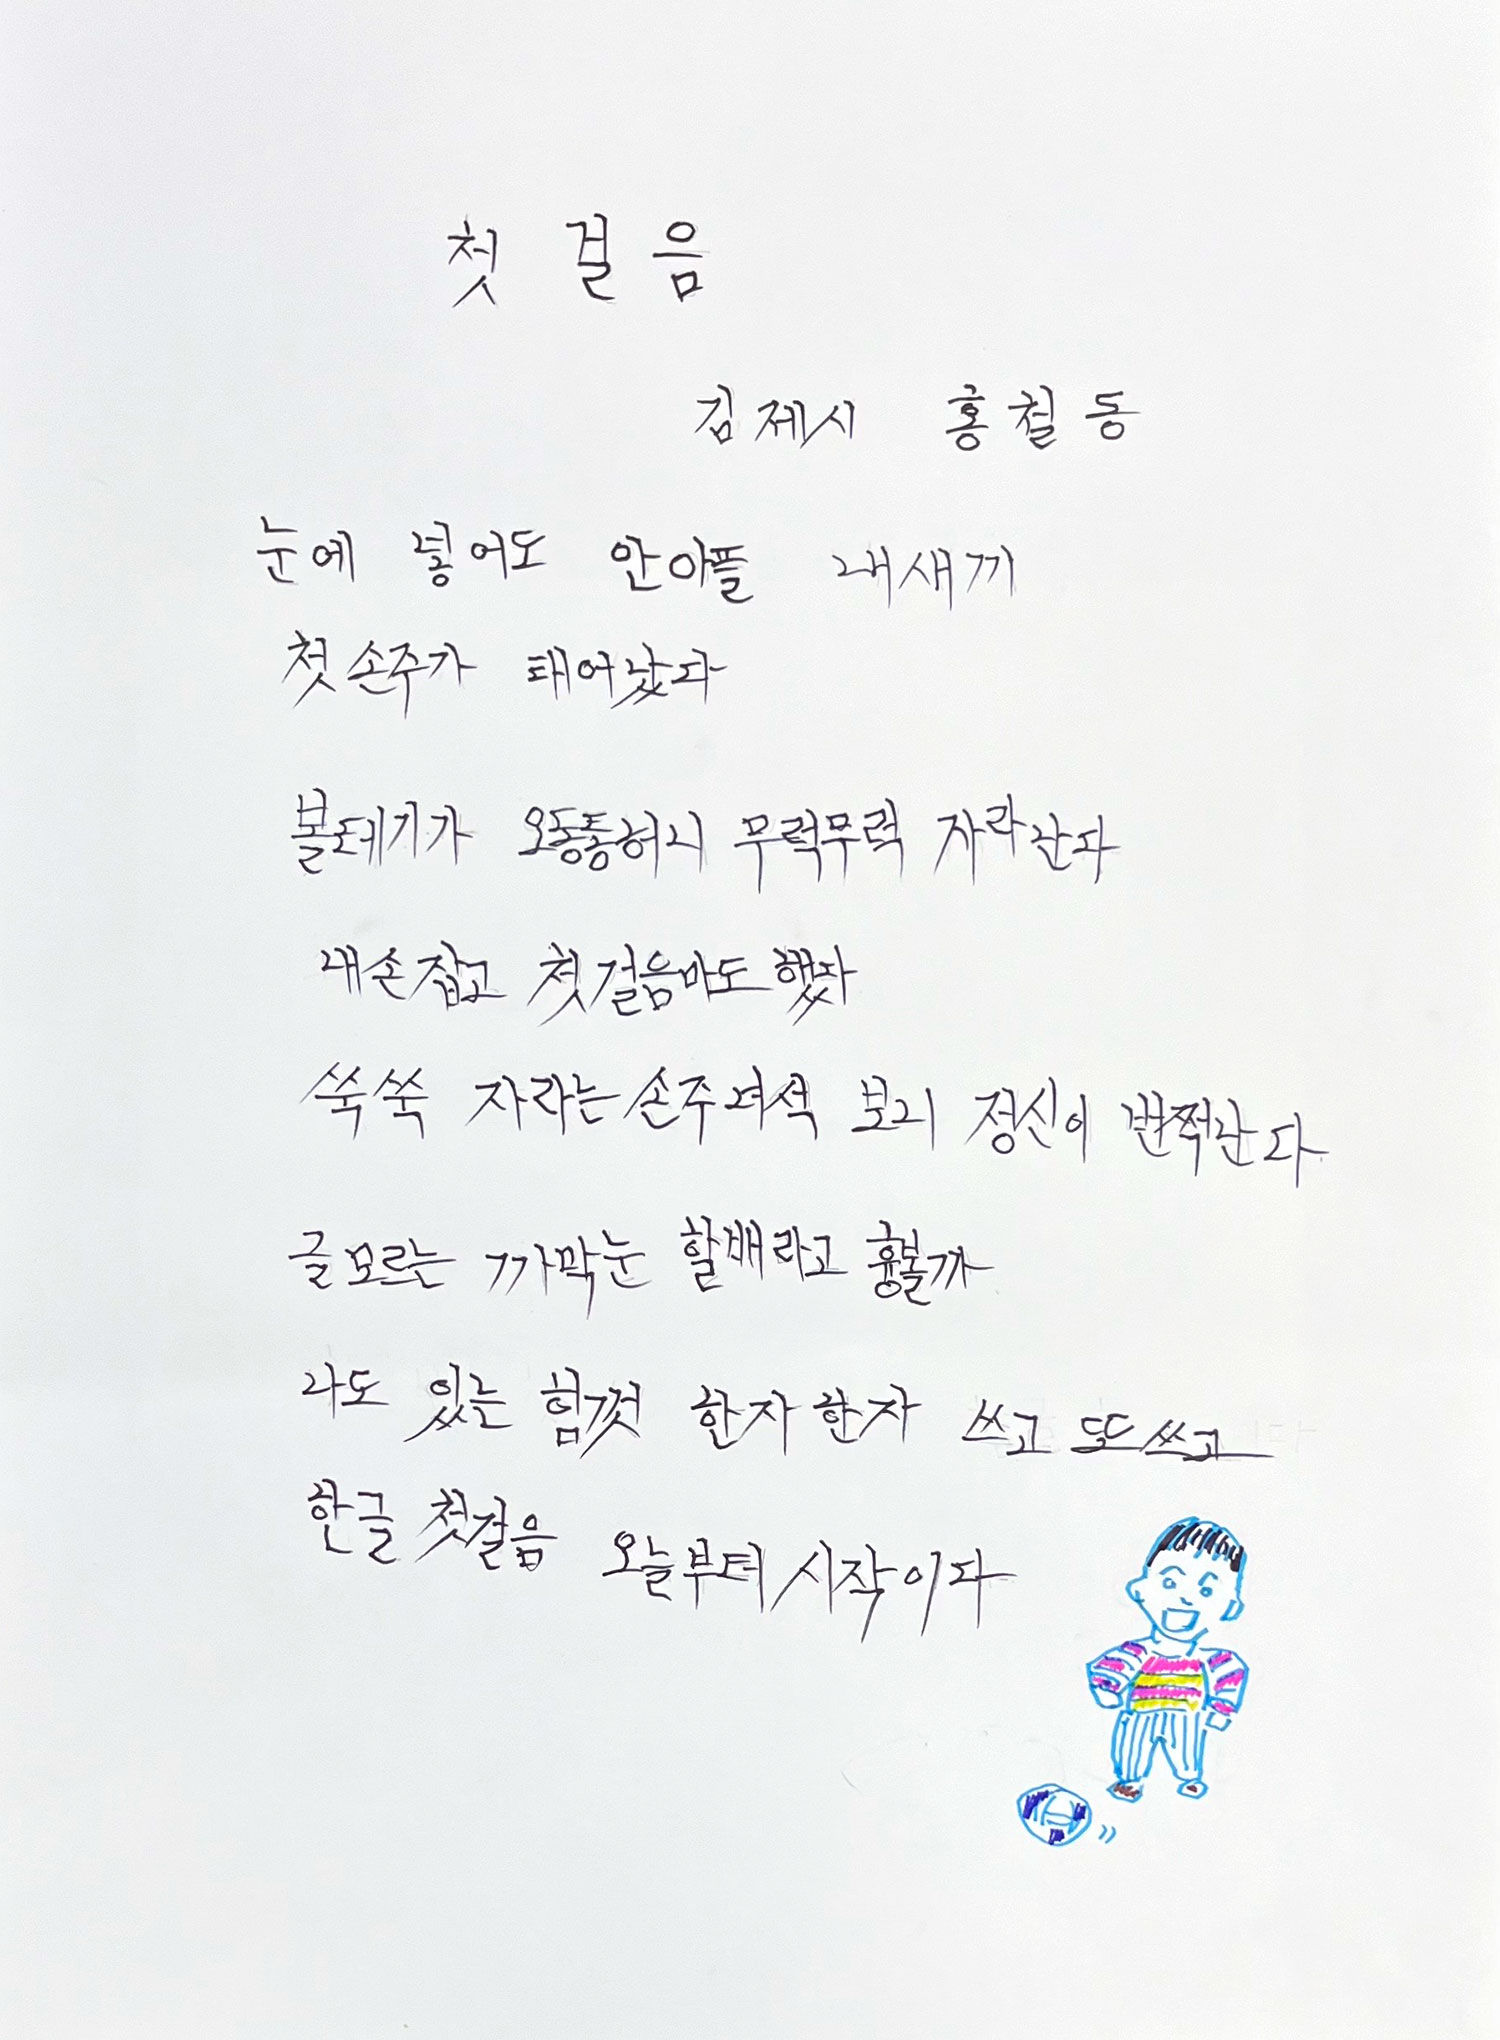 첫 걸 음
김제시 홍철동
눈에 넣어도 안아플 내새끼
첫손주가 태어났다
볼테기가 오동통허니 무럭무럭 자라난다
내손잡고 첫걸음마도했다
쑥쑥 자라는손주녀석 보니 정신이 번쩍난다
글모르는 까막눈 할배라고 흉볼까
나도 있는 힘껏 한자한자 쓰고 또쓰고
한글 첫걸음 오늘부터시작이다